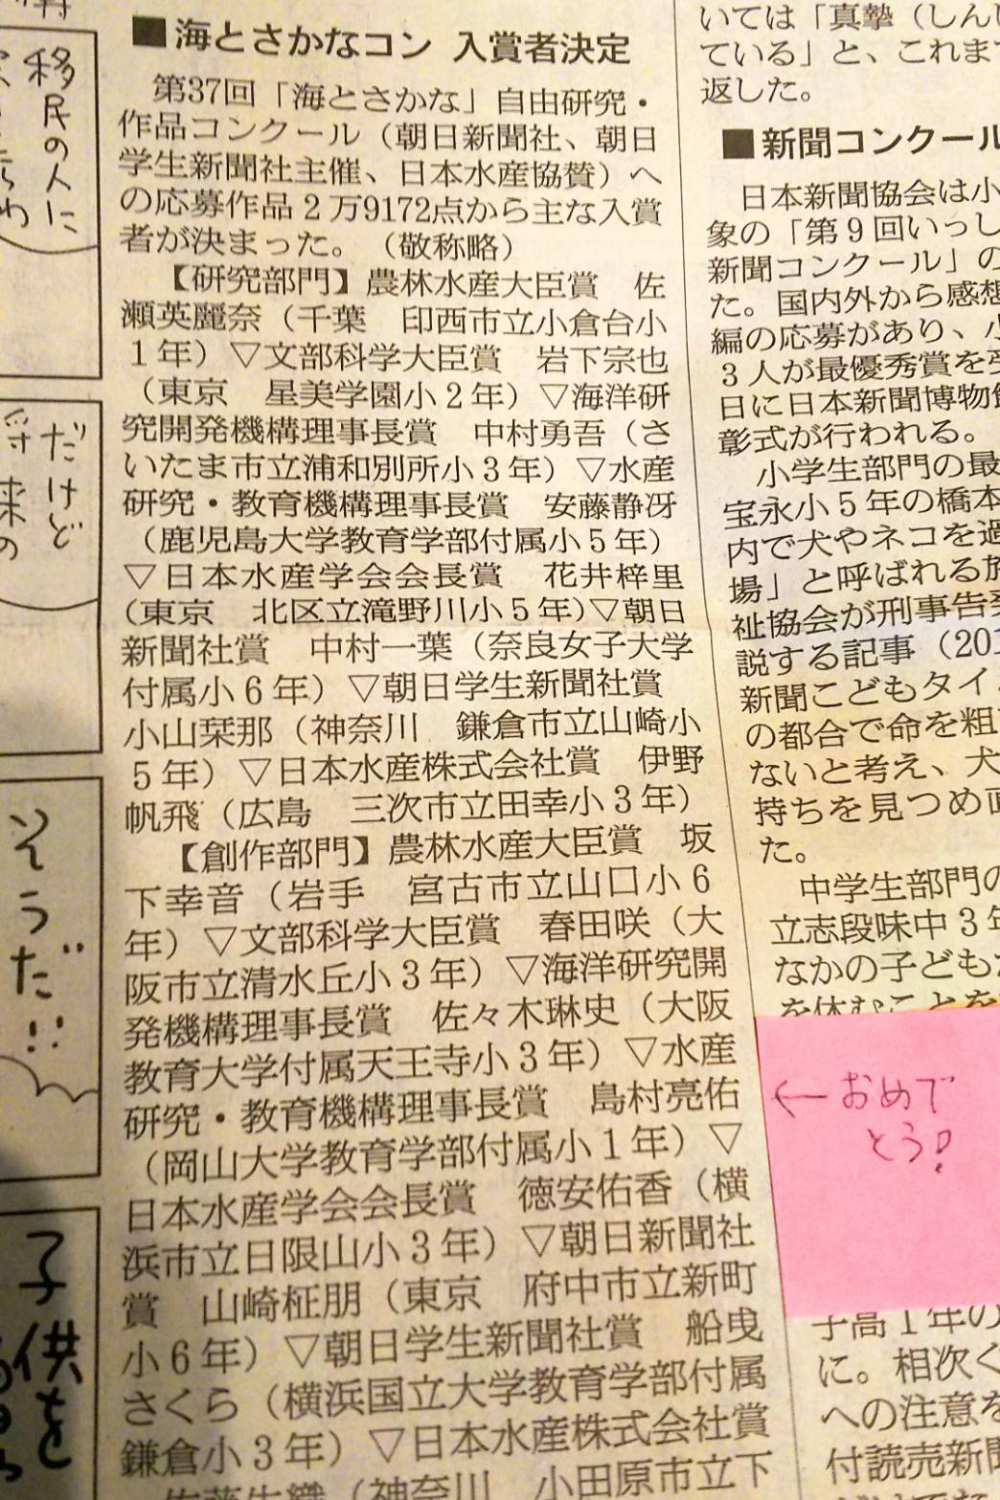 移民の人に
だけど
将来の
そうだ!!
子供を
■海とさかなコン 入賞者決定
第37回「海とさかな」自由研究・
作品コンクール（朝日新聞社、朝日
学生新聞社主催、日本水産協賛）へ
の応募作品２万9172点から主な入賞
者が決まった。（敬称略）
【研究部門】農林水産大臣賞　佐
瀬英麗奈（千葉　印西市立小倉台小
１年）▽文部科学大臣賞　岩下宗也
（東京　星美学園小２年）▽海洋研
究開発機構理事長賞　中村勇吾（さ
いたま市立浦和別所小３年）▽水産
研究・教育機構理事長賞　安藤静冴
（鹿児島大学教育学部付属小５年）
▽日本水産学会会長賞　花井梓里
（東京　北区立滝野川小５年）▽朝日
新聞社賞　中村一葉（奈良女子大学
付属小６年）▽朝日学生新聞社賞
小山栞那（神奈川　鎌倉市立山崎小
５年）▽日本水産株式会社賞　伊野
帆飛（広島　三次市立田幸小３年）
【創作部門】農林水産大臣賞　坂
下幸音（岩手　宮古市立山口小６
年）▽文部科学大臣賞　春田咲（大
阪市立清水丘小３年）▽海洋研究開
発機構理事長賞　佐々木琳史（大阪
教育大学付属天王寺小３年）▽水産
研究・教育機構理事長賞　島村亮佑
（岡山大学教育学部付属小１年）▽
日本水産学会会長賞　徳安佑香（横
浜市立日限山小３年）▽朝日新聞社
賞　山崎柾朋（東京　府中市立新町
小６年）▽朝日学生新聞社賞　船曵
さくら（横浜国立大学教育学部付属
鎌倉小３年）▽日本水産株式会社賞
（神奈川　小田原市立下
いては「真摯（しん
ている」と、これま
返した。
■新聞コンクール
日本新聞協会は小
象の「第９回いっし
新聞コンクール」の
た。国内外から感想
編の応募があり、小
３人が最優秀賞を受
日に日本新聞博物館
彰式が行われる。
小学生部門の最
宝永小５年の橋本
内で犬やネコを過
場」と呼ばれる施
祉協会が刑事告発
説する記事（201
新聞こどもタイ
の都合で命を粗
ないと考え、犬
持ちを見つめ直
た。
中学生部門の
立志段味中３年
なかの子どもた
を休むことを
←おめで
とう!
子高１年の
に。相次ぐ
への注意を
付読売新聞